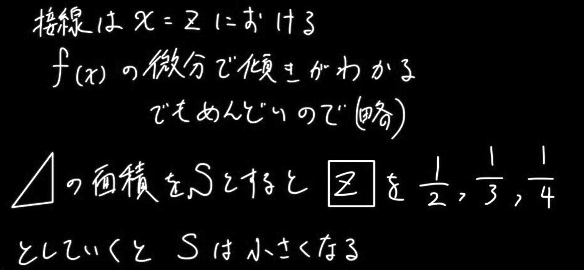 接線は x = z における
f(x) の微分で傾きがわかる
でもめんどいので(略)
の面積をSとすると z を 1/2, 1/3, 1/4
としていくと S は小さくなる